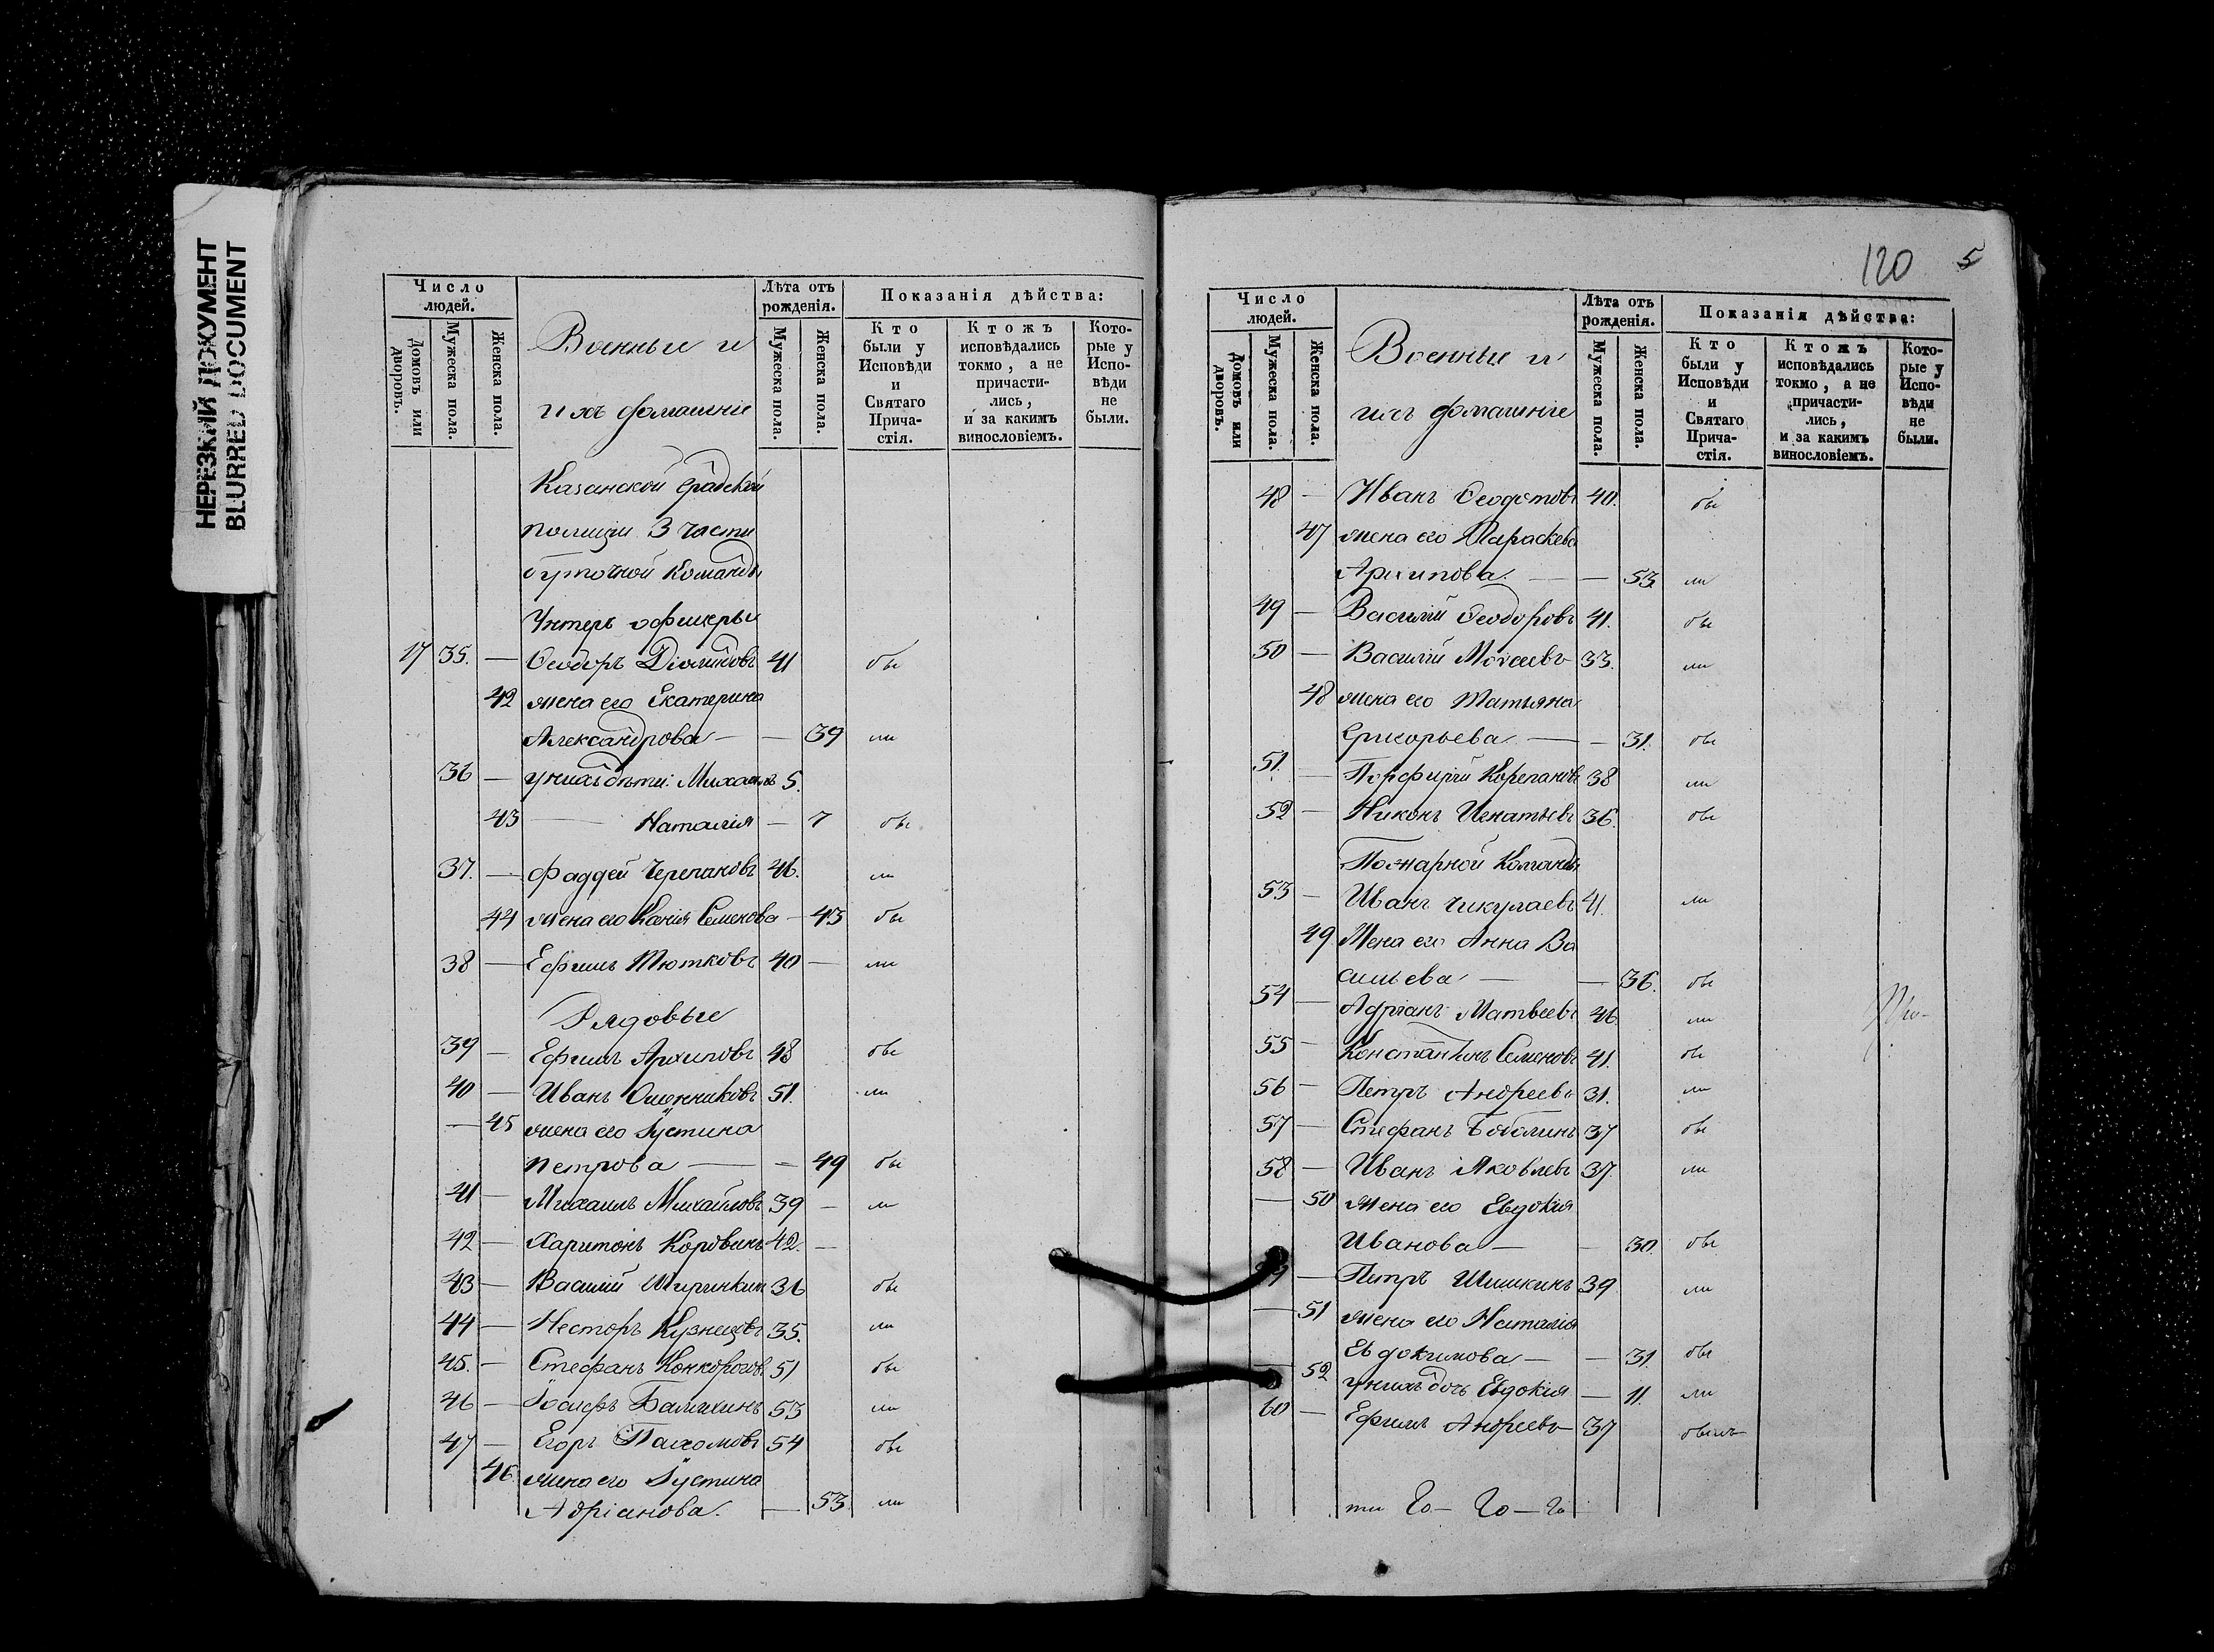 НЕРЕЗКИЙ ДОКУМЕНТ
BLURRED DOCUMENT
Число людей.
Домовъ или дворовъ.
Мужеска пола.
Женска пола.
Военные и
ихъ домашніе
Лѣта отъ рожденія.
Мужеска пола.
Женска пола.
Показанія дѣйства:
Кто были у Исповѣди и Святаго Прича-стія.
Ктожъ исповѣдались токмо, а не причасти-лись, и за какимъ винословіемъ.
Кото-рые у Испо-вѣди не были.
Казанской Градской
полиціи 3 части
будочной команды
Унтеръ офицеры
17 35. — Ѳеодоръ Діомидовъ 41 бы
42 жена его Екатерина
Александрова — — 39 ли
36 — у нихъ дѣти: Михаилъ 5.
43 — Наталія — 7 бы
37. — Фаддей Черепановъ 46. ли
44 жена его Ксенія Семенова — 43 бы
38 — Ефимъ Тютковъ 40 — ли
Рядовые
39 — Ефимъ Архиповъ 48 бы
40 — Иванъ 51. ли
— 45 жена его Іустина
Петрова — — 49 бы
41 — Михаилъ Михайловъ 39 — ли
42 — Харитонъ Коровинъ 42. —
43 — Василій Ширинкин 36 бы
44 — Несторъ Кузнецовъ 35. ли
45. — Стефанъ 51 бы
46 — Іосифъ Балихинъ 53 ли
47 — Егоръ Пахомовъ 54 бы
46. жена его Іустина
Адріанова. — 53. ли
120 5
Число людей.
Домовъ или дворовъ.
Мужеска пола.
Женска пола.
Военные и
ихъ домашніе
Лѣта отъ рожденія.
Мужеска пола.
Женска пола.
Показанія дѣйства:
Кто были у Исповѣди и Святаго Прича-стія.
Ктожъ исповѣдались токмо, а не причасти-лись, и за какимъ винословіемъ.
Кото-рые у Испо-вѣди не были.
48 — Иванъ Ѳеодотовъ 40. бы
47 жена его Параскева
Архипова. — — 53 ли
49 — Василій Ѳеодоровъ 41. бы
50 — Василій Моѵсеевъ 33. ли
48 жена его Татьяна
Григорьева — — 31. бы
51. — Порфирій Корепановъ 38 ли
52 — Никонъ Игнатьевъ 36. бы
Пожарной Команды
53 — Иванъ Чикулаевъ 41. ли
49 Жена его Анна Ва
сильева — — 36. бы
54 — Адріанъ Матвеевъ 46. ли
55 — Константинъ Семеновъ 41. бы
56 — Петръ Андреевъ 31. ли
57 — Стефанъ 37 бы
58 — Иванъ Яковлевъ 37. ли
— 50 Жена его Евдокія
Иванова — — 30. бы
59 — Петръ Шишкинъ 39 ли
— 51 жена его Наталія
Евдокимова — — 31. бы
— 52 у нихъ дочь Евдокія — 11. ли
60 — Ефимъ Андреевъ 37 былъ